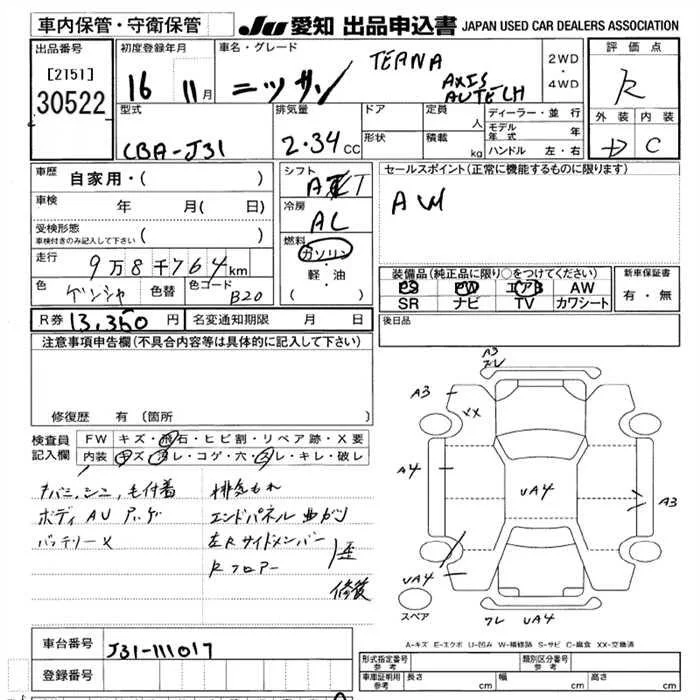 車内保管・守衛保管
JU 愛知 出品申込書 JAPAN USED CAR DEALERS ASSOCIATION
出品番号
[2151]
30522
初度登録年月
16 11月
車名・グレード
ニッサン TEANA
AXIS
AUTECH
2WD
・
4WD
評価点
R
外装 内装
D C
型式
CBA-J31
排気量
2.34cc
ドア
形状
定員 人
積載 kg
ディーラー・並行
モデル年式 年
ハンドル 左・右
車歴 自家用・( )
車検 年 月( 日)
受検形態
車検付きのみ記入して下さい ( )
走行 9万8千764km
色 ゲンシャ 色替 色コード B20
シフト
AT
冷房
AL
燃料
ガソリン
・
軽・油
( )
セールスポイント(正常に機能するものに限ります)
AW
装備品(純正品に限り○をつけてください)
PS PW エアB AW
SR ナビ TV カワシート
新車保証書
有・無
R券 13,360円 名変通知期限 月 日
後日品
注意事項申告欄(不具合内容等は具体的に記入して下さい)
修復歴 有(箇所 )
検査員
記入欄
FW キズ・飛石・ヒビ割・リペア跡・X要
内装 キズ・ヨレ・コゲ・穴・スレ・キレ・破レ
排気もれ
エンドパネル曲がり
ボディ AU
左Rサイドメンバー
バッテリーX
Rフロアー
歪
修復
A3
A3
XX
A4
UA4
A3
UA4
ワレ UA4
スペア
A-キズ E-エクボ U-凹み W-補修跡 S-サビ C-腐食 XX-交換済
車台番号 J31-111017
登録番号
形式指定番号
参考
類別区分番号
参考
車庫証明用
参考
長さ cm 幅 cm 高さ cm